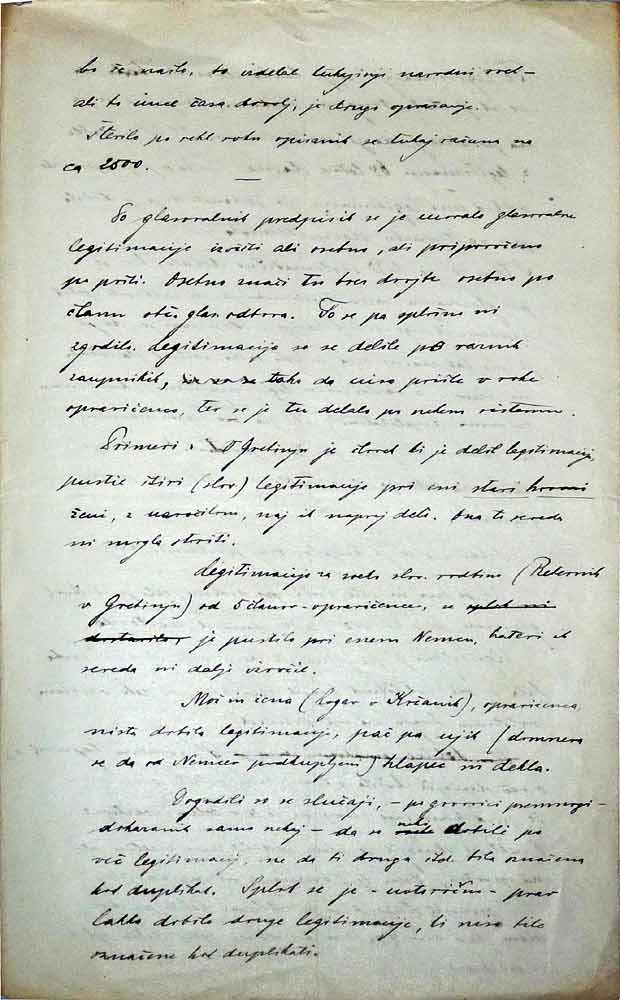 bo še našlo, to izdelal tukajšnji narodni svet –
ali bo imel časa dovolj, je drugo vprašanje.
Število po rekl. roku opisanih se tukaj računa na
ca 2500.
Po glasovalnih predpisih se je moralo glasovalne
legitimacije izročiti ali osebno, ali priporočeno
po pošti. Osebno znači tu brez dvojbe osebno po
članu obč. glas. odbora. To se pa splošno ni
zgodilo. Legitimacije so se delile po raznih
zaupnikih, tako da niso prišle v roke
opravičenca, ter se je tu delalo po nekem sistemu.
Primeri: V Grebinju je
 ki je delil legitimacije,
pustil štiri (slov) legitimacije pri eni stari
ženi, z naročilom, naj ih naprej deli. Ona te seveda
ni mogla storiti.
Legitimacije za neko slov. rodbino
v Grebinju) od 5 članov-opravičencev, se sploh ni
dostavilo, je pustilo pri enem Nemcu, kateri ih
seveda ni dalje izročil.
Mož in žena (Logar v), opravičenca,
nista dobila legitimacije, pač pa njih (domneva
se da od Nemcev podkupljeni) hlapec in dekla.
Dogodili so se slučaji, – po govorici premnogi –
dokazanih samo nekaj – da so neki dobili po
več legitimacij, ne da bi druga itd. bila označena
kot duplikat. Sploh se je – notorično – prav
lahko dobilo druge legitimacije, ki niso bile
označene kot duplikati.